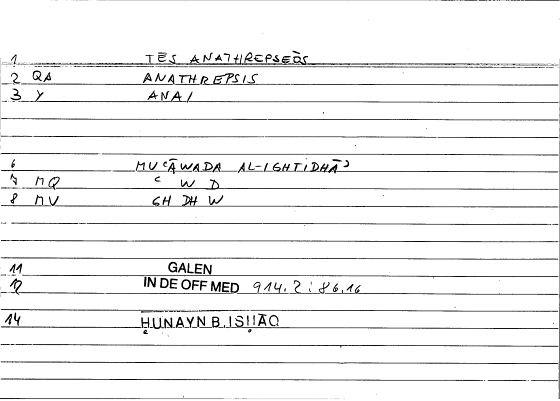 1 TĒS ANATHREPSEŌS
2 QA ANATHREPSIS
3 Y ANA/
6 MUʿĀWADA AL-IGHTIDHĀʾ
7 MQ ʿ W D
8 MV GH DH W
11 GALEN
12 IN DE OFF MED 914.2 : 86.16
14 ḤUNAYN B. ISḤĀQ